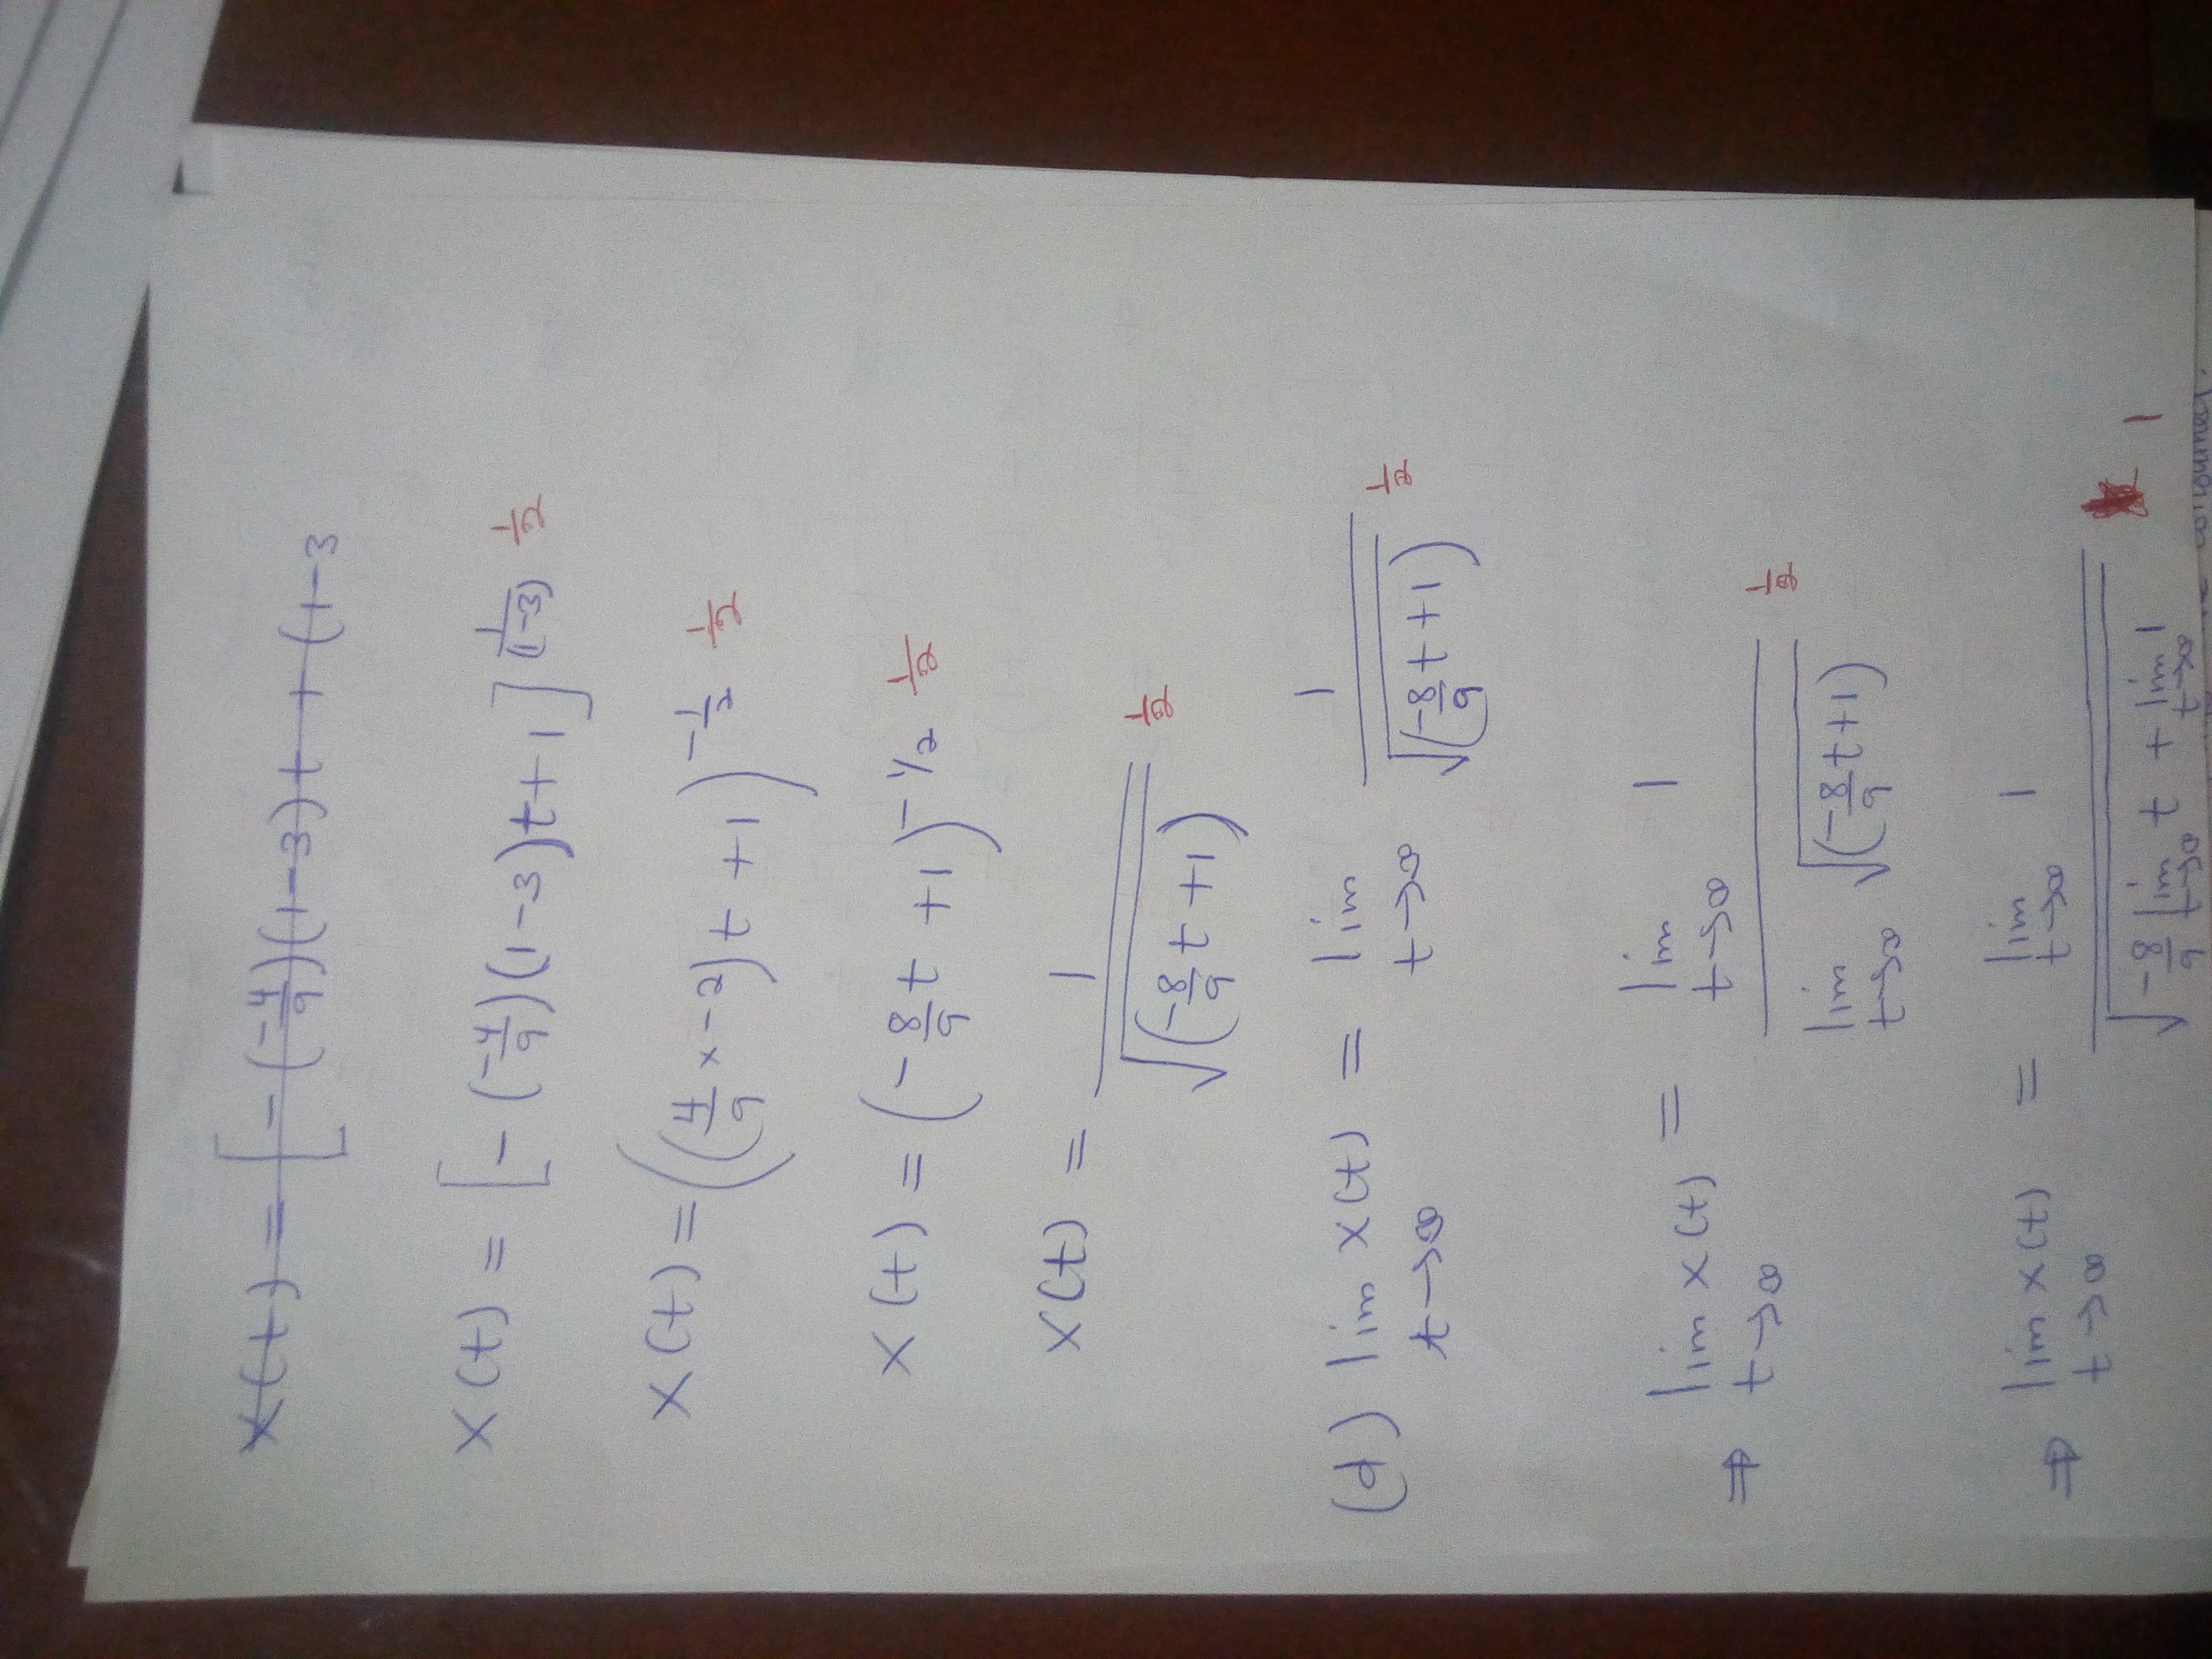 x(t) = [-(-4/9)(1-3)t + (1-3
x(t) = [-(-4/9)(1-3)t+1]^(1/(1-3)) 1/2
x(t) = ((4/9 x -2)t +1)^-1/2 1/2
x(t) = (-8/9 t +1)^-1/2 1/2
x(t) = 1/√(-8/9 t +1) 1/2
(d) lim t→∞ x(t) = lim t→∞ 1/√(-8/9 t +1) 1/2
⇒ lim t→∞ x(t) = lim t→∞ 1 / lim t→∞ √(-8/9 t+1) 1/2
⇒ lim t→∞ x(t) = lim t→∞ 1 / √(-8/9 lim t→∞ t + lim t→∞ 1) 1